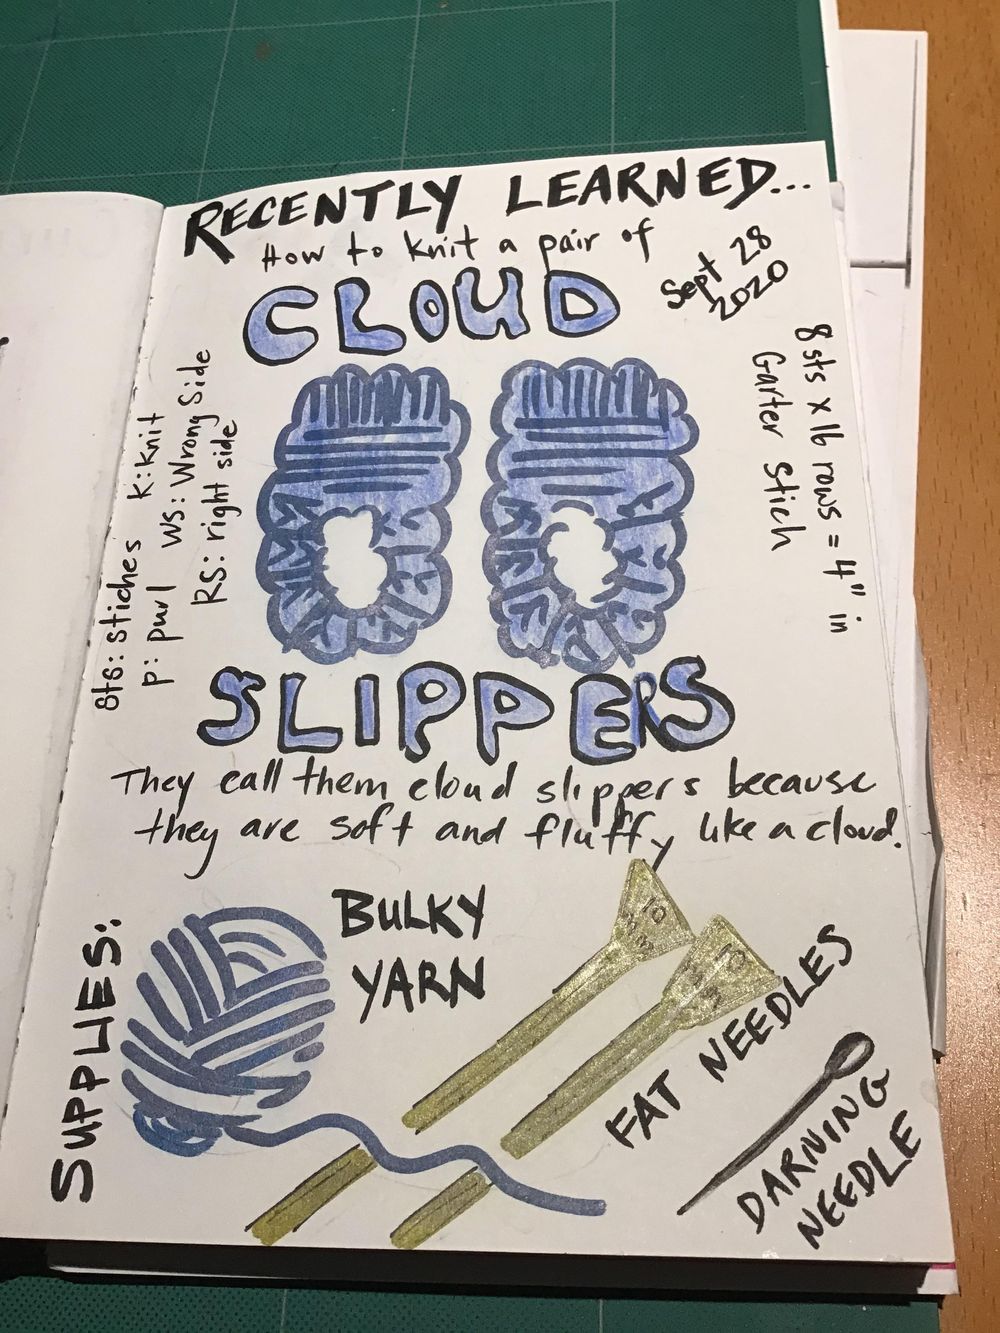 RECENTLY LEARNED...
How to knit a pair of
Sept 28
2020
CLOUD
sts: stiches k: knit
p: purl ws: Wrong Side
RS: right side
8 sts x 16 rows = 4" in
Garter Stich
SLIPPERS
They call them cloud slippers because
they are soft and fluffy like a cloud.
SUPPLIES:
BULKY
YARN
10
FAT NEEDLES
DARNING
NEEDLE